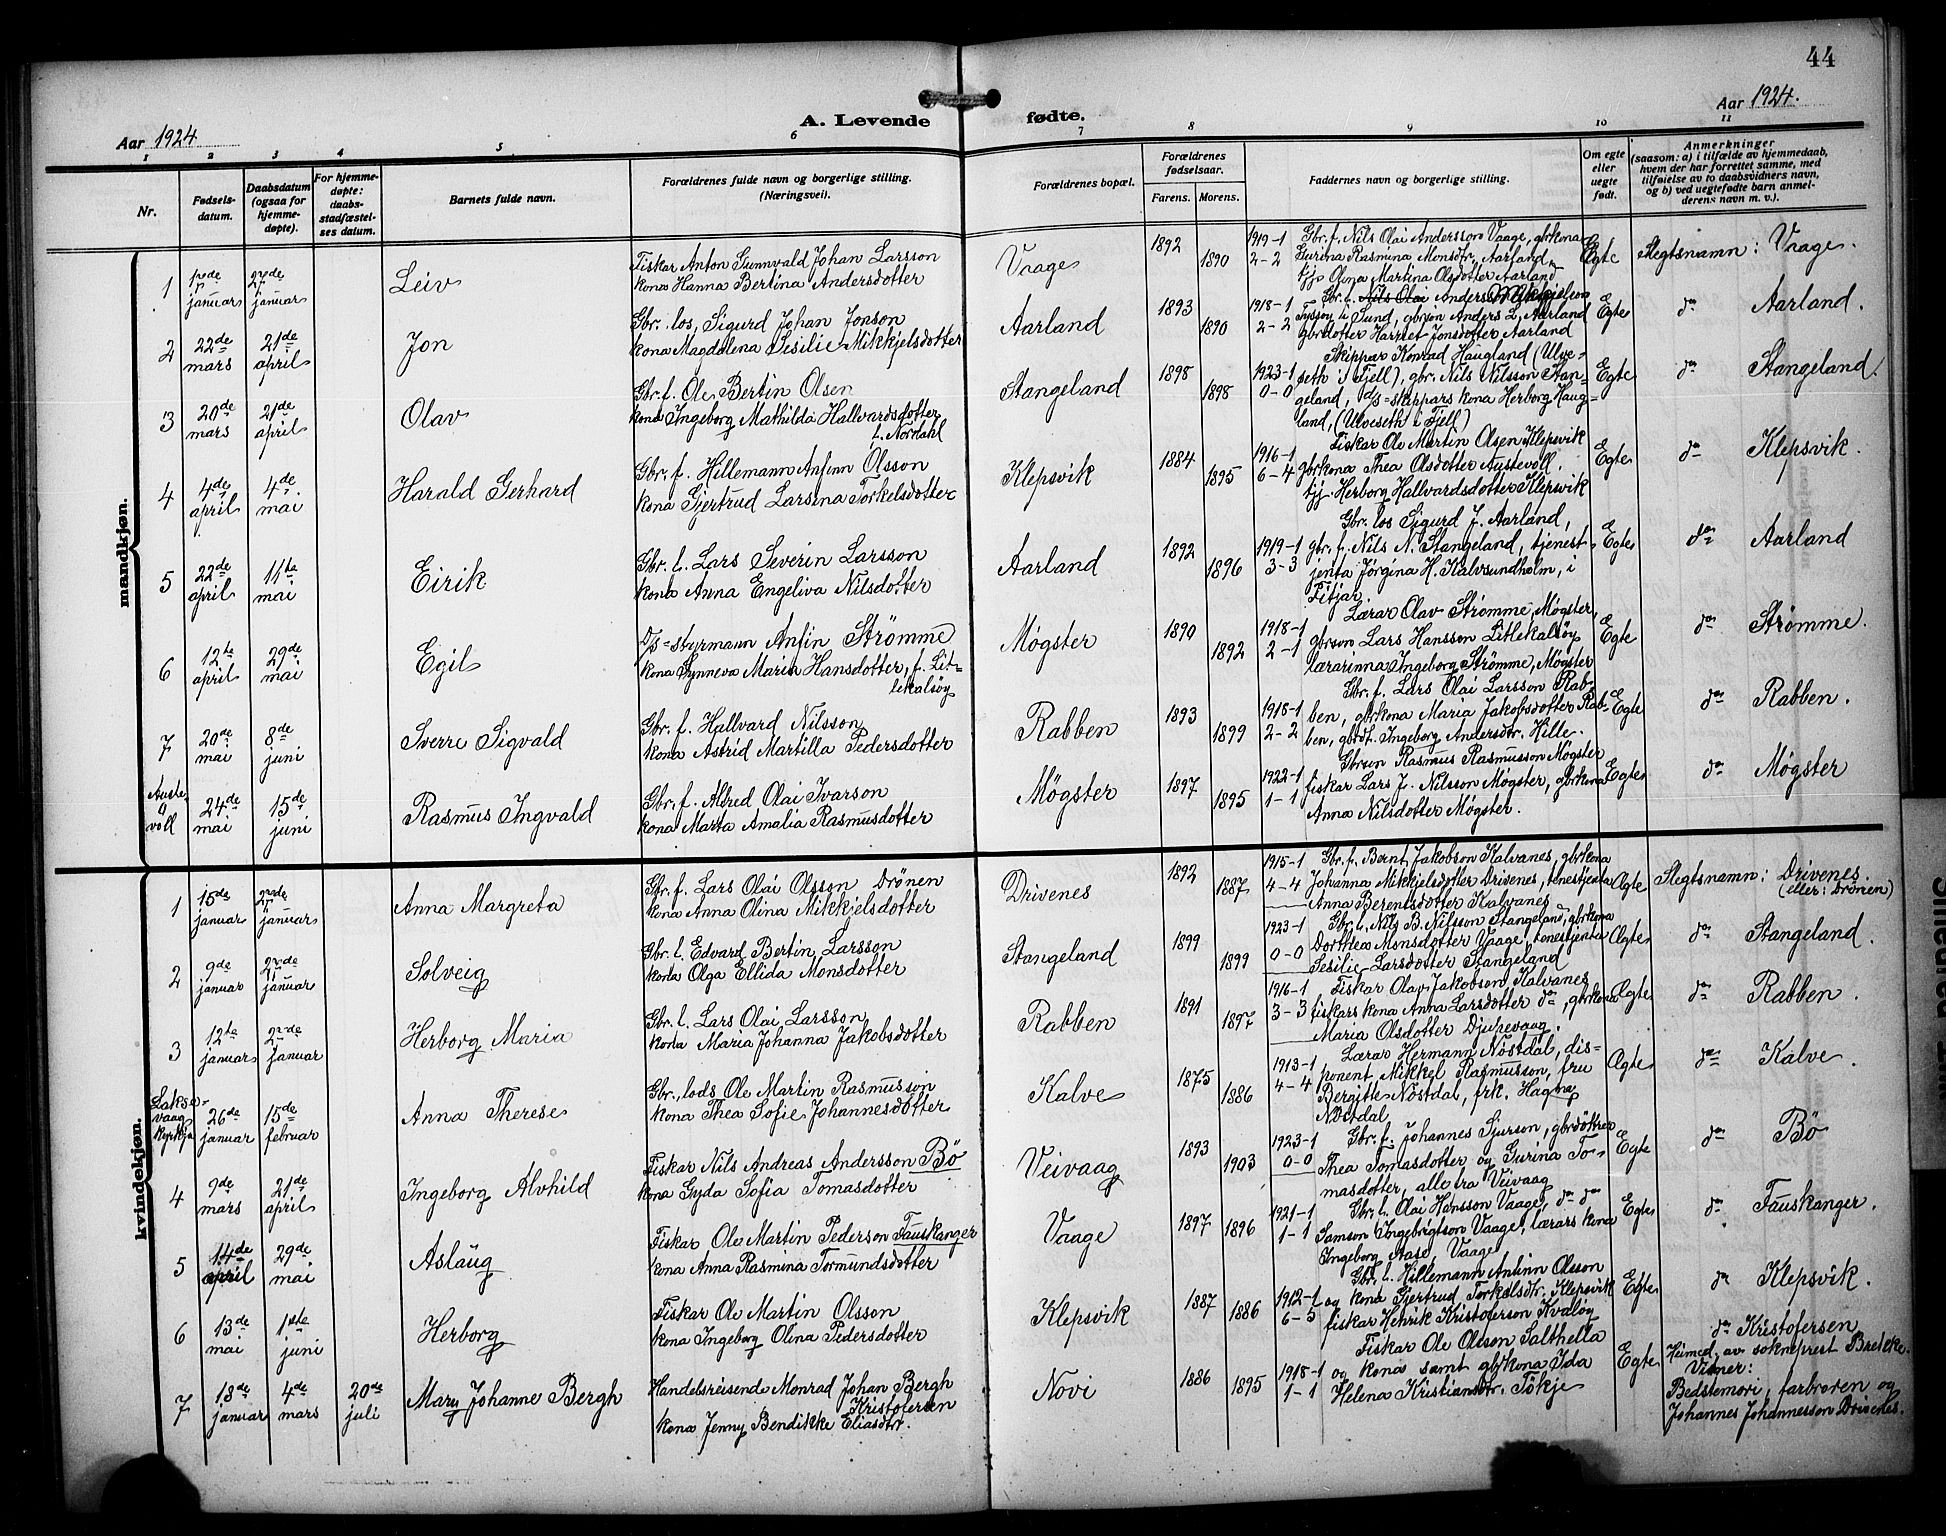 44
Aar 1924
A. Levende fødte.
Aar 1924.
1 2 3 4 5 6 7 8 9 10 11
Nr.
Fødsels-
datum.
Daabsdatum
(ogsaa for
hjemme-
døpte).
For hjemme-
døpte:
daabs-
stadfæstel-
ses datum.
Barnets fulde navn.
Forældrenes fulde navn og borgerlige stilling.
(Næringsvei).
Forældrenes bopæl.
Forældrenes
fødselsaar.
Farens. Morens.
Faddernes navn og borgerlige stilling.
Om egte
eller
uegte
født.
Anmerkninger
(saasom: a) i tilfælde av hjemmedaab,
hvem der har forrettet samme, med
tilføielse av to daabsvidners navn,
og b) ved uegtefødte barn anmel-
derens navn m. v.).
mandkjøn.
1 1ste januar 2den januar Leiv
Fiskar Anton Gunnvald Johan Larsson
kona Hanna Bertina Andersdotter
Vaage 1892 1890 1919-1 2-2
Gbr. f. Nils Olai Andersson Vaage, gbrkona
Gurina Rasmina Monsdtr. Aarland,
tjj. Olina Martina Olsdotter Aarland
Egte Slegtsnamn: Vaage.
2 22de mars 21de april Jon
Gbr. los, Sigurd Johan Jonson
kona Magdalena Sesilie Mikkjelsdotter
Aarland 1893 1890 1918-1 2-2
i Sund, gbrson Anders L. Aarland
gbrdotter Harriet Jonsdotter Aarland
Egte do Aarland.
3 20de mars 21de april Olav
Gbr. l. Ole Bertin Olsen
kona Ingeborg Mathilda Hallvardsdotter
f. Nordahl
Stangeland 1898 1898 1923-1 0-0
Skippar Konrad Haugland (Ulve-
seth i Fjell), gbr. Nils Nilsson Stan-
geland, D/s=skippars kona Herborg Haug-
land, (Ulveseth i Fjell)
Egte do Stangeland.
4 4de april 4de mai Harald Gerhard
Gbr. f. Hillemann Anfinn Olsson
kona Gjertrud Larsina Torkelsdotter
Klepsvik 1884 1895 1916-1 6-4
Fiskar Ole Martin Olsen Klepsvik
gbrkona Thea Olsdotter Austevoll.
tjj. Herborg Hallvardsdotter Klepsvik
Egte do Klepsvik.
5 22de april 11te mai Eirik
Gbr. l. Lars Severin Larsson
kona Anna Engeliva Nilsdotter
Aarland 1892 1896 1919-1 3-3
Gbr. los Sigurd J. Aarland,
gbr. f. Nils N. Stangeland, tjenest-
jenta Jørgina H. Kalvsundholm, i
Fitjar
Egte do Aarland
6 12te april 29de mai Egil
D/s=styrmann Anfin Strømme
kona Synneva Maria Hansdotter, f. Lit-
lekalsøy
Møgster 1890 1892 1918-1 2-1
Lærar Olav Strømme, Møgster,
gbrson Lars Hansson Litlekalsøy
lærarinna Ingeborg Strømme, Møgster
Egte do Strømme.
7 20de mai 8de juni Sverre Sigvald
Gbr. f. Hallvard Nilsson
kona Astrid Martilla Pedersdotter
Rabben 1893 1899 1918-1 2-2
Gbr. f. Lars Olai Larsson Rab-
ben, gbrkona Maria Jakobsdotter Rab-
ben, gbrdt. Ingeborg Andersdtr. Hille.
Egte do Rabben.
Auste-
voll
24de mai 15de juni Rasmus Ingvald
Gbr. f. Alfred Olai Ivarson
kona Marta Amalia Rasmusdotter
Møgster 1897 1895 1922-1 1-1
Gbrson Rasmus Rasmusson Møgster
fiskar Lars J. Nilsson Møgster, gbrkona
Anna Nilsdotter Møgster.
Egte do Møgster
kvindekjøn.
1 15de januar 2den januar Anna Margreta
Gbr. f. Lars Olai Olsson Drönen
kona Anna Olina Mikkjelsdotter
Drivenes 1892 1887 1915-1 4-4
Gbr. f. Bernt Jakobson Kalvanes, gbrkona
Johanna Mikkjelsdotter Drivenes, tenestjenta
Anna Berentsdotter Kalvanes
Egte Slegtsnamn: Drivenes.
(eller: Drönen)
2 9de januar 2den januar Solveig
Gbr. l. Edvard Bertin Larsson
kona Olga Ellida Monsdotter
Stangeland 1899 1899 1923-1 0-0
Gbr. l. Nils B. Nilsson Stangeland, gbrkona
Dorthea Monsdotter Vaage, tenestjenta
Sesilie Larsdotter Stangeland
Egte do Stangeland.
3 12te januar 2den januar Herborg Maria
Gbr. l. Lars Olai Larsson
kona Maria Johanna Jakobsdotter
Rabben 1891 1897 1916-1 3-3
Fiskar Olav Jakobson Kalvanes
fiskars kona Anna Larsdotter do, gbrkona
Maria Olsdotter Djupevaag.
Egte do Rabben.
Laksе-
vaag
kyrkja
26de januar 15de februar Anna Therese
Gbr., lods Ole Martin Rasmusson
kona Thea Sofie Johannesdotter
Kalve 1875 1886 1913-1 4-4
Lærar Hermann Nøstdal, dis-
ponent Mikkel Rasmusson, fru
Bergitte Nøstdal, frk. Hagna
Nøstdal
Egte do Kalve.
4 9de mars 21de april Ingeborg Alvhild
Fiskar Nils Andreas Andersson Bö
kona Gyda Sofia Tomasdotter
Veivaag 1893 1903 1923-1 0-0
Gbr. f. Johannes Sjurson, gbrdøtrer
Thea Tomasdotter og Gurina To-
masdotter, alle fra Veivaag
Egte do Bö
5 14de april 29de mai Aslaug
Fiskar Ole Martin Pederson Fauskanger
kona Anna Rasmina Tormundsdotter
Vaage 1897 1896 1921-1 1-1
Gbr. l. Olai Hansson Vaage, do do
Samson Ingebrigtson Vaage, lærars kona
Ingeborg Aase, Vaage
Egte do Fauskanger.
6 13de mai 1ste juni Herborg
Fiskar Ole Martin Olsson
kona Ingeborg Olina Pedersdotter
Klepsvik 1887 1886 1912-1 6-5
Gbr. l. Hillemann Anfinn Olsson
og kona Gjertrud Torkelsdtr. Klepsvik
fiskar Henrik Kristoferson Kvaløy
Egte do Klepsvik.
7 18de januar 4de mars 20de juli Mary Johanne Bergh
Handelsreisende Monrad Johan Bergh
Kristofersen
kona Jenny Bendikke Eliasdtr.
Novi 1886 1895 1918-1 1-1
Fiskar Ole Olsson Salthella
og kona samt gbrkona Ida
Helena Kristiansdtr. Tökje
Egte do Kristofersen
Heimed. av sokneprest Bretke.
Vitner:
Bedstemori, farbroren og
Johannes Johannesson Drivenes.